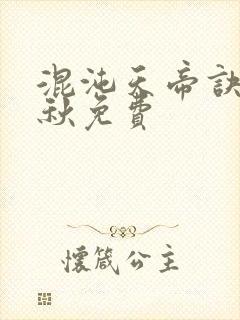 混沌天帝訣
秋免費
懷箴公主